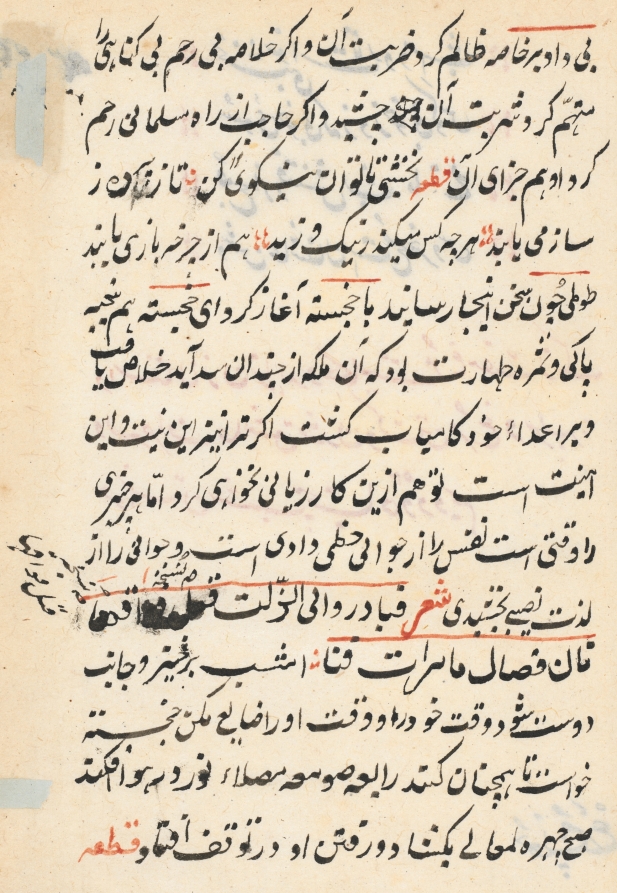 بی داد بر خاصه ظالم کرد ضربت آن و اکر خلاصه بی رحم بی کناهی را
متهم کرد شربت آن چشید و اکر حاجب از راه مسلمانی رحم
کرد او هم جزای آن قطعه نخشبی تا توان نیکوی کن تا ز تو
ساز می یابند هرچه کس میکند ز نیک و ز بد هم از چرخه بازی یابند
طوطی چون سخن اینجا رسانید با خجسته آغاز کرد ای خجسته هم نتیجه
پاکی و ثمره طهارت بود که آن ملکه از چندان سد آید خلاص یافت
و بر اعداء خود کامیاب کشت اکر ترا نیز این نیت و این
امنیت است تو هم ازین کار زیانی نخواهی کرد اما هر چیزی
را وقتی است نفس را از جوانی حظی دادی است و جوانی را از
لذت نصیبی بخشیدی شعر فبادر والی الزلت
فان فصال ما سرات فنا امشب برخیز و جانب
دوست شو و وقت خود را و وقت او را ضایع مکن خجسته
خواست تا همچنان کند رابعه صومعه مصلاء نور در هوا افکند
صبح چهره لمعالی بکشاد و رفتن او در توقف افتاد قطعه